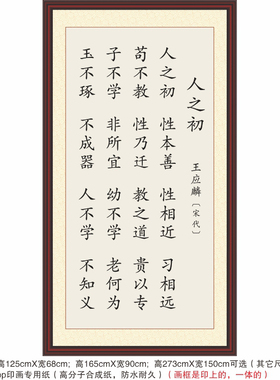 人之初
王应麟〔宋代〕
人之初 性本善 性相近 习相远
苟不教 性乃迁 教之道 贵以专
子不学 非所宜 幼不学 老何为
玉不琢 不成器 人不学 不知义
高125cmX宽68cm; 高165cmX宽90cm; 高273cmX宽150cm可选（其它尺
pp印画专用纸（高分子合成纸，防水耐久）（画框是印上的，一体的）